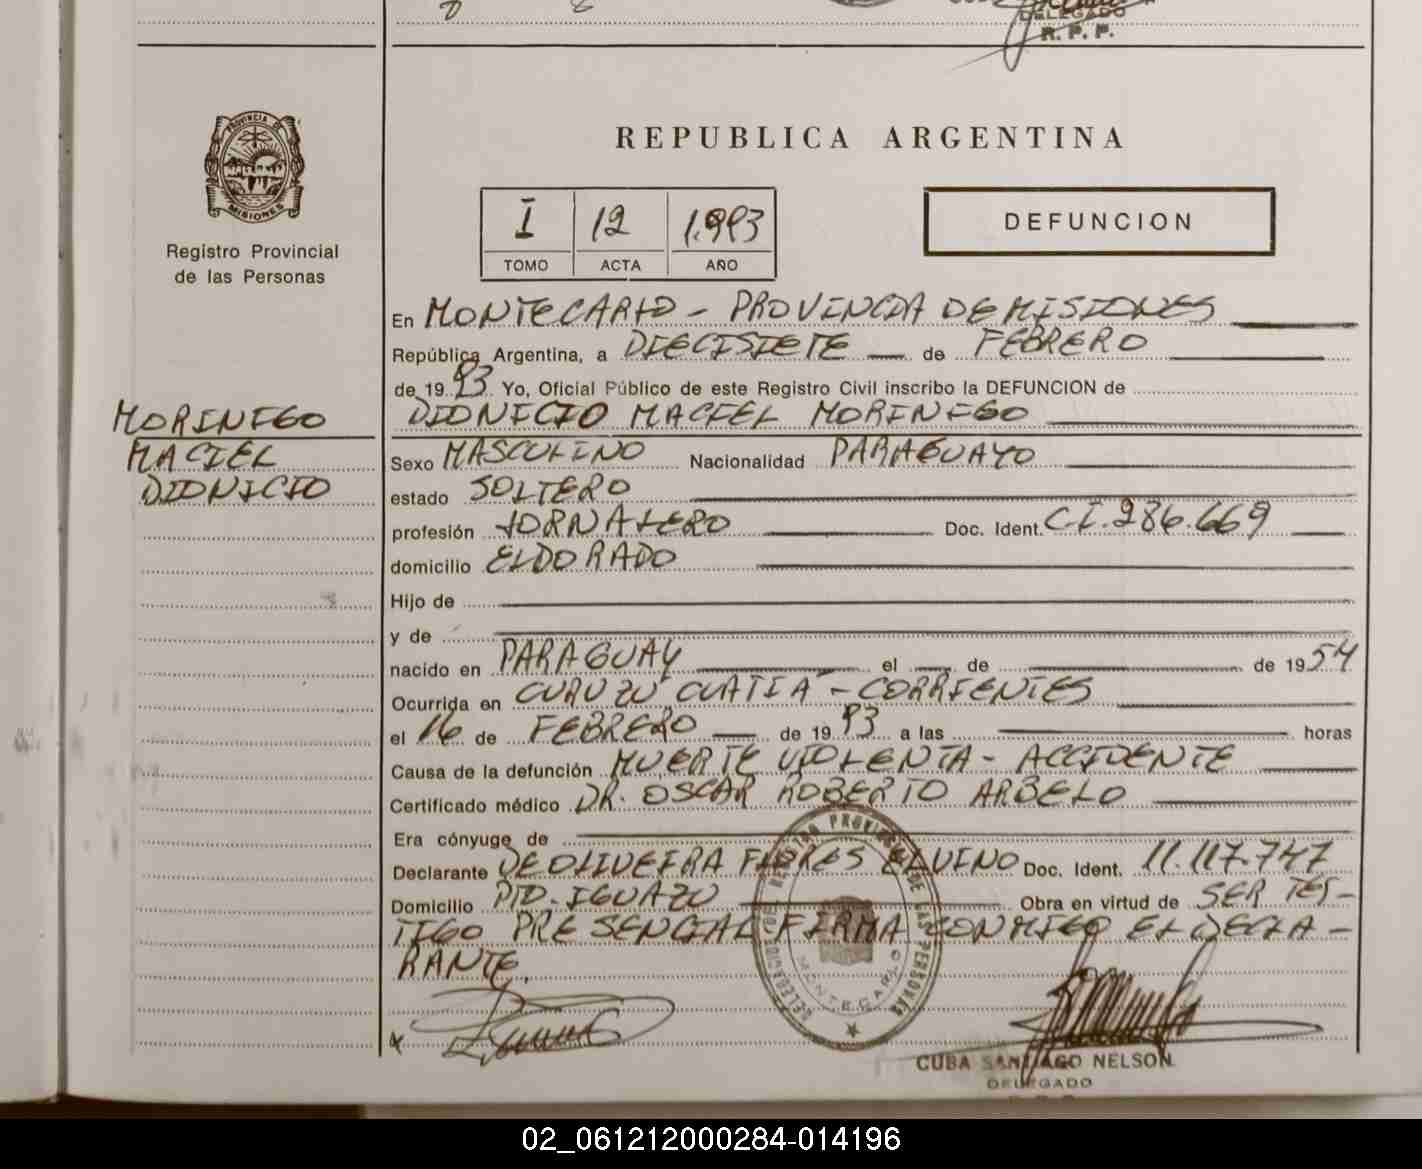 DELEGADO
R. P. P.
PROVINCIA DE
MISIONES
Registro Provincial
de las Personas
REPUBLICA ARGENTINA
I 12 1.993
TOMO ACTA AÑO
DEFUNCION
En MONTECARLO - PROVINCIA DE MISIONES
República Argentina, a DIECISIETE de FEBRERO
de 19 93 Yo, Oficial Público de este Registro Civil inscribo la DEFUNCION de
DIONICIO MACIEL MORINIGO
MORINIGO
MACIEL
DIONICIO
Sexo MASCULINO Nacionalidad PARAGUAYO
estado SOLTERO
profesión JORNALERO Doc. Ident. C.I. 286.669
domicilio ELDORADO
Hijo de
y de
nacido en PARAGUAY el de de 1954
Ocurrida en CURUZU CUATIA - CORRIENTES
el 16 de FEBRERO de 19 93 a las horas
Causa de la defunción MUERTE VIOLENTA - ACCIDENTE
Certificado médico DR. OSCAR ROBERTO ARBELO
Era cónyuge de
Declarante DE OLIVEIRA FLORES ELVINO Doc. Ident. 11.117.747
Domicilio PTO. IGUAZU Obra en virtud de SER TES-
TIGO PRESENCIAL FIRMA CONMIGO EL DECLA-
RANTE.
DELEGACION DEL REGISTRO PROVINCIAL DE LAS PERSONAS
MONTECARLO
CUBA SANTIAGO NELSON
DELEGADO
02_061212000284-014196